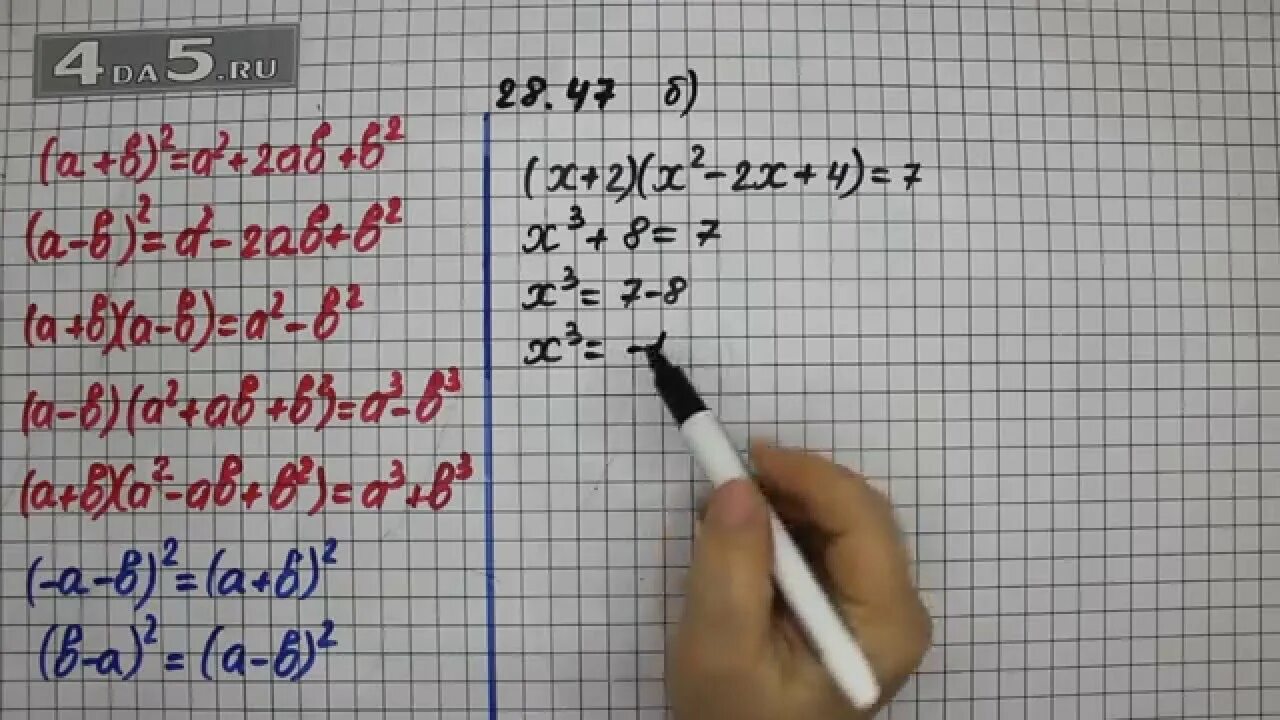 4DA5.RU
(a+b)²=a²+2ab+b²
(a-b)²=a²-2ab+b²
(a+b)(a-b)=a²-b²
(a-b)(a²+ab+b²)=a³-b³
(a+b)(a²-ab+b²)=a³+b³
(-a-b)²=(a+b)²
(b-a)²=(a-b)²
28.47 б)
(x+2)(x²-2x+4)=7
x³+8=7
x³=7-8
x³=-